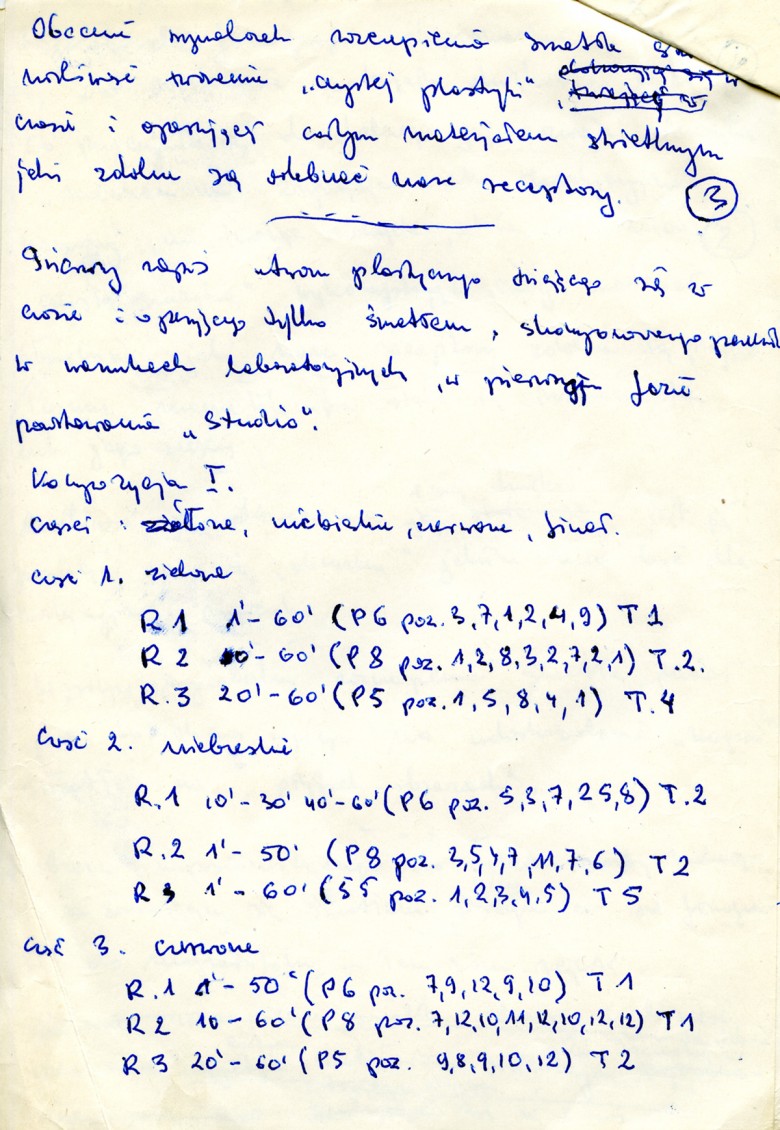 Obecnie wynalazek rozczepienia światła
możliwość tworzenia „czystej plastyki”
czasie i operującej całym materiałem świetlnym
jaki zdolne są odebrać nasze receptory. 3
Pierwszy zapis utworu plastycznego dziejącego się w
czasie i operującego tylko światłem, skomponowanego
w warunkach laboratoryjnych, w pierwszej fazie
powstawania „Studio”.
Kompozycja I.
części : zielone, niebieskie, czerwone, finał.
część 1. zielone
R 1 1' - 60' (P6 poz. 3,7,1,2,4,9) T 1
R 2 10' - 60' (P8 poz. 1,2,8,3,2,7,2,1) T.2.
R.3 20' - 60' (P5 poz. 1,5,8,4,1) T.4
Część 2. niebieskie
R.1 10' - 30' 40' - 60' (P6 poz. 5,3,7,2 5,8) T.2
R.2 1' - 50' (P8 poz. 3,5,4,7,11,7,6) T 2
R 3 1' - 60' (55 poz. 1,2,3,4,5) T 5
część 3. czerwone
R.1 1' - 50' (P6 poz. 7,9,12,9,10) T 1
R 2 10 - 60' (P8 poz. 7,12,10,11,12,10,12,12) T 1
R 3 20' - 60' (P5 poz. 9,8,9,10,12) T 2